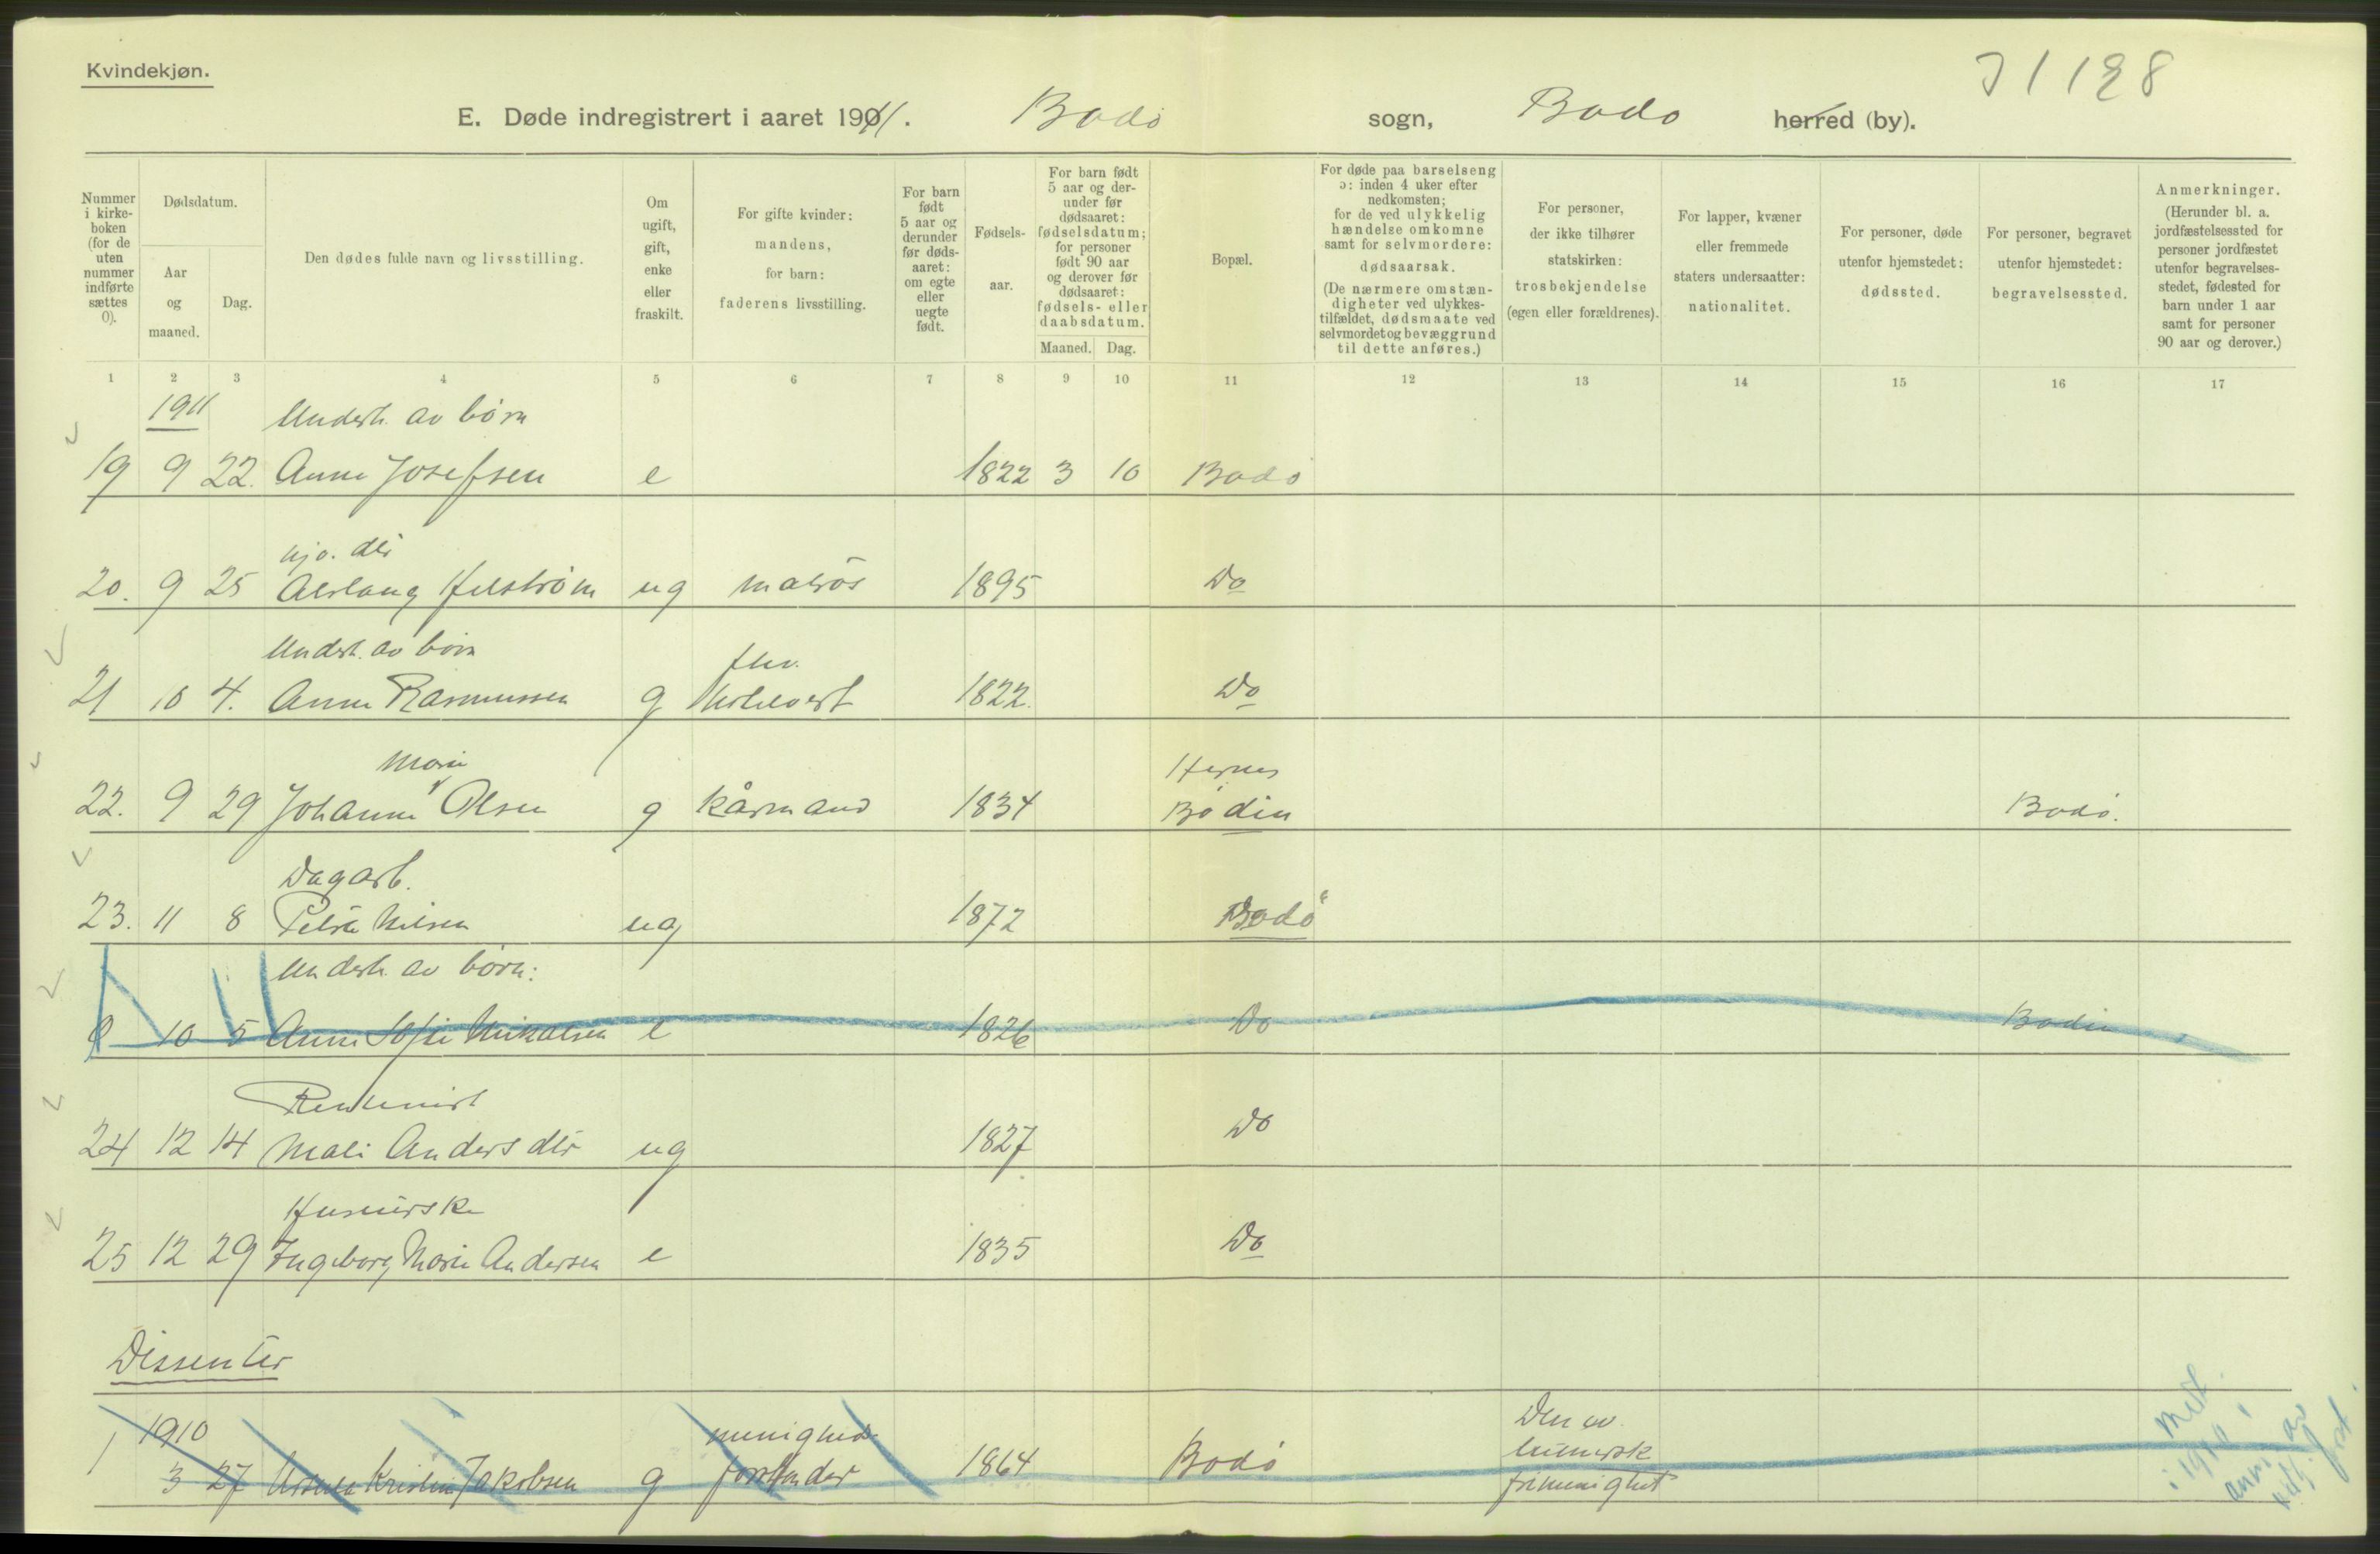 Kvindekjøn.
J 1128
E. Døde indregistrert i aaret 1911. Bodø sogn, Bodø herred (by).
Nummer i kirke- boken (for de uten nummer indførte sættes 0).
Dødsdatum.
Aar og maaned.
Dag.
Den dødes fulde navn og livsstilling.
Om ugift, gift, enke eller fraskilt.
For gifte kvinder: mandens, for barn: faderens livsstilling.
For barn født 5 aar og derunder før døds- aaret: om egte eller uegte født.
Fødsels- aar.
For barn født 5 aar og der- under før dødsaaret: fødselsdatum; for personer født 90 aar og derover før dødsaaret: fødsels- eller daabsdatum.
Maaned. Dag.
Bopæl.
For døde paa barselseng ɔ: inden 4 uker efter nedkomsten; for de ved ulykkelig hændelse omkomne samt for selvmordere: dødsaarsak. (De nærmere omstæn- digheter ved ulykkes- tilfældet, dødsmaate ved selvmordet og bevæggrund til dette anføres.)
For personer, der ikke tilhører statskirken: trosbekjendelse (egen eller forældrenes).
For lapper, kvæner eller fremmede staters undersaatter: nationalitet.
For personer, døde utenfor hjemstedet: dødssted.
For personer, begravet utenfor hjemstedet: begravelsessted.
Anmerkninger. (Herunder bl. a. jordfæstelsessted for personer jordfæstet utenfor begravelses- stedet, fødested for barn under 1 aar samt for personer 90 aar og derover.)
1 2 3 4 5 6 7 8 9 10 11 12 13 14 15 16 17
1911 Underh. av børn
19 9 22. Anne Josefsen e 1822 3 10 Bodø
hjv. dtr
20. 9 25 Aslaug Helstrøm ug matros 1895 Do
Underh. av børn fhv.
21 10 4. Anne Rasmussen g 1822. Do
Marie Hernes
22. 9 29 Johanne Olsen g kårmand 1834 Bodin Bodø.
Dagarb.
23. 11 8 Petra Nilsen ug 1872 Bodø
Underh. av børn:
0 10 5 Anne Sofie Mikalsen e 1826 Do Bodin
Rentenist
24 12 14 Mali Andersdtr ug 1827 Do
Husvirske
25 12 29 Ingeborg Marie Andersen e 1835 Do
Dissenter
1910 menigheds Den ev.
1 3 27 Kristine Jakobsen g forstander 1864 Bodø luthersk
frimenighet
Med
i 1910